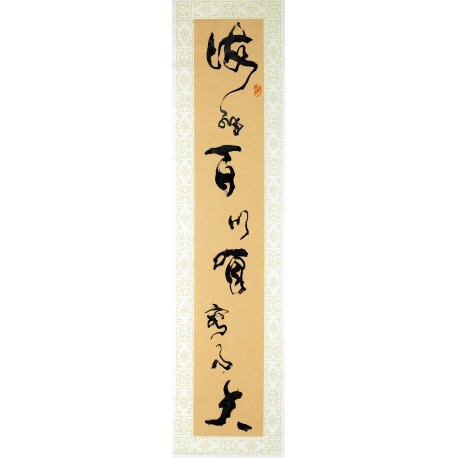 海納百川有容乃大